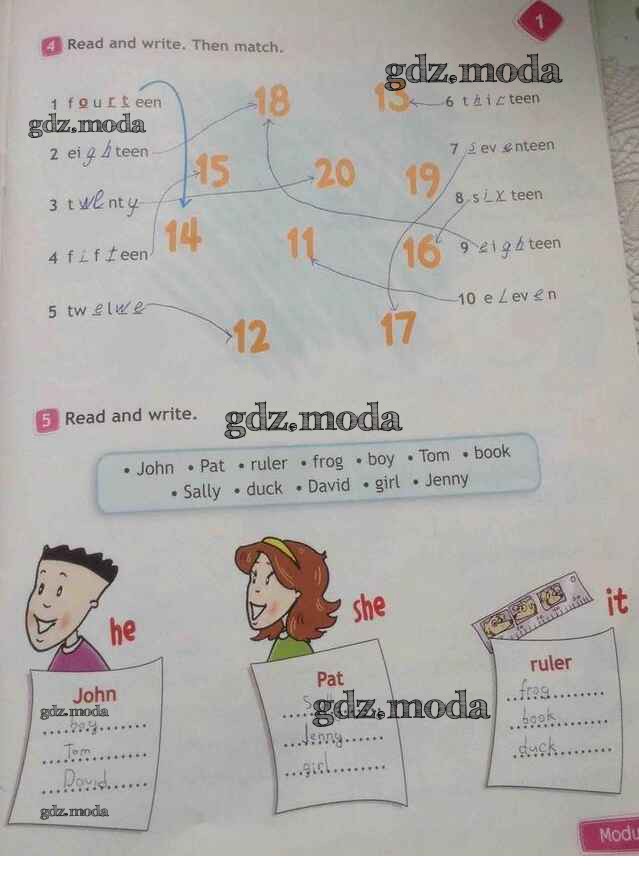 1
4 Read and write. Then match.
gdz.moda
1 fourteen 18 13 6 thirteen
gdz.moda
2 eighteen 7 seventeen
15 20 19
3 twenty 8 sixteen
14 11 16
4 fifteen 9 eighteen
5 twelwe 10 eleven
12 17
5 Read and write.
gdz.moda
• John • Pat • ruler • frog • boy • Tom • book
• Sally • duck • David • girl • Jenny
he
John
gdz.moda
boy
Tom
David
gdz.moda
she
Pat
gdz.moda
Jenny
girl
it
ruler
frog
book
duck